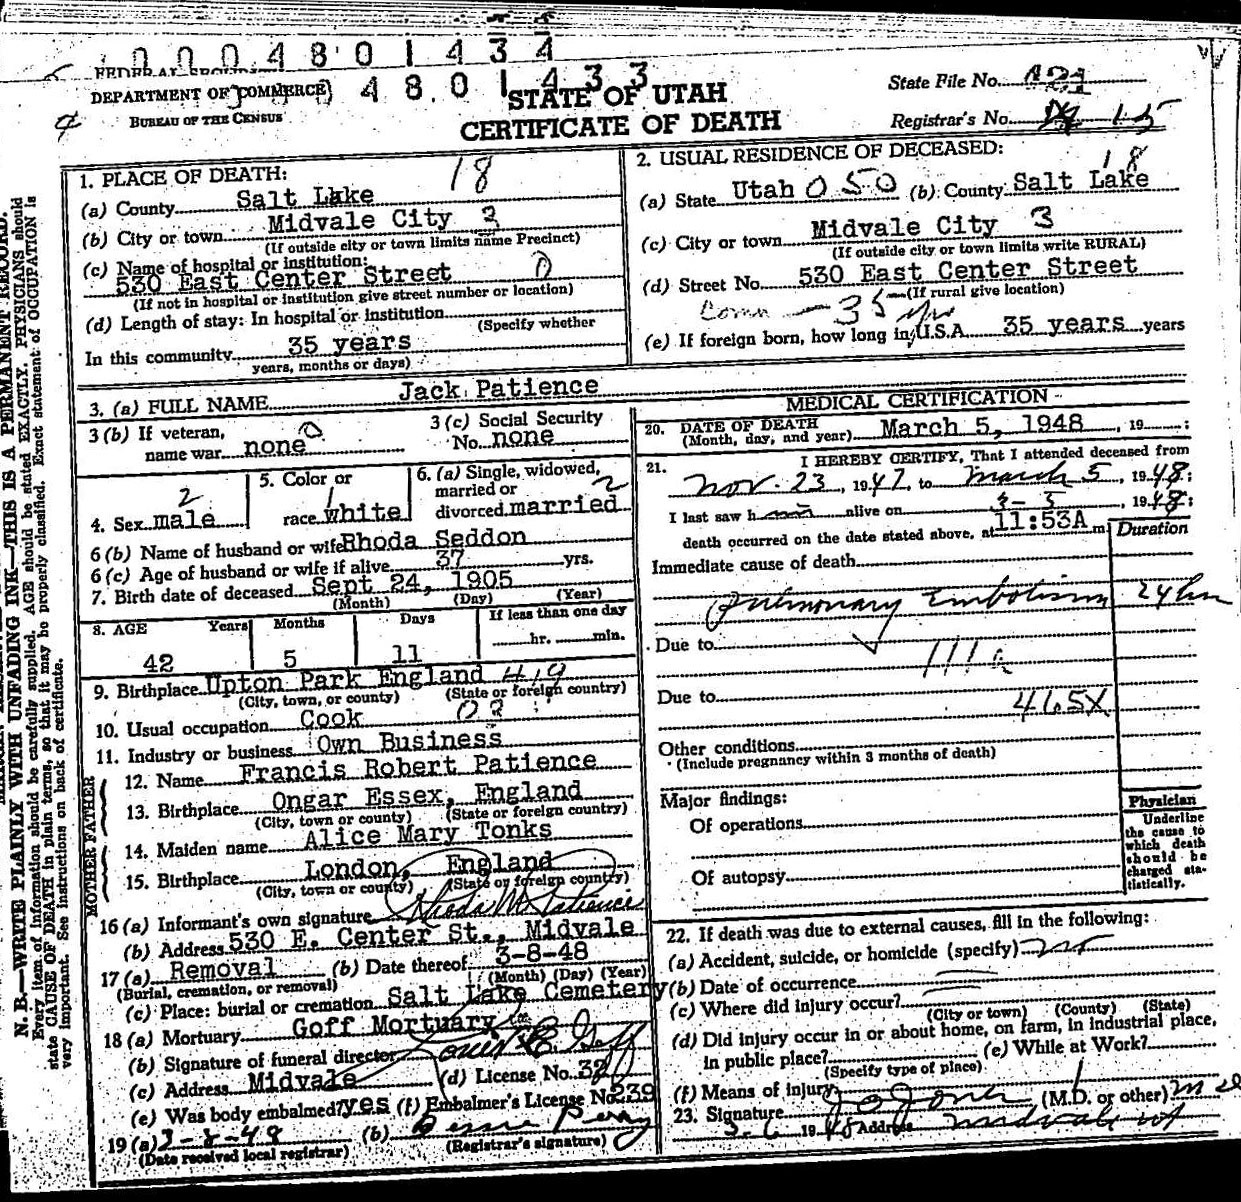 0 0 0 4 8 0 1 4 3 4
DEPARTMENT OF COMMERCE
4 8 0 1 4 3 3
BUREAU OF THE CENSUS
STATE OF UTAH
CERTIFICATE OF DEATH
State File No.
Registrar's No. 15
1. PLACE OF DEATH: 18
(a) County Salt Lake
(b) City or town Midvale City 3
(If outside city or town limits name Precinct)
(c) Name of hospital or institution:
530 East Center Street 0
(If not in hospital or institution give street number or location)
(d) Length of stay: In hospital or institution
(Specify whether
In this community 35 years
years, months or days)
2. USUAL RESIDENCE OF DECEASED: 18
(a) State Utah 050 (b) County Salt Lake
(c) City or town Midvale City 3
(If outside city or town limits write RURAL)
(d) Street No. 530 East Center Street
(If rural give location)
Comm — 35 yrs
(e) If foreign born, how long in U.S.A. 35 years years
3. (a) FULL NAME Jack Patience
3 (b) If veteran, name war none 0
3 (c) Social Security No. none
4. Sex male 2
5. Color or race white 1
6. (a) Single, widowed, married or divorced married 2
6 (b) Name of husband or wife Rhoda Seddon
6 (c) Age of husband or wife if alive 37 yrs.
7. Birth date of deceased Sept 24, 1905
(Month) (Day) (Year)
8. AGE Years Months Days If less than one day
42 5 11 hr. min.
9. Birthplace Upton Park England 419
(City, town, or county) (State or foreign country)
10. Usual occupation Cook
11. Industry or business Own Business
FATHER
12. Name Francis Robert Patience
13. Birthplace Ongar Essex, England
(City, town or county) (State or foreign country)
MOTHER
14. Maiden name Alice Mary Tonks
15. Birthplace London, England
(City, town or county) (State or foreign country)
16 (a) Informant's own signature Rhoda M Patience
(b) Address 530 E. Center St., Midvale
17 (a) Removal (b) Date thereof 3-8-48
(Burial, cremation, or removal) (Month) (Day) (Year)
(c) Place: burial or cremation Salt Lake Cemetery
18 (a) Mortuary Goff Mortuary
(b) Signature of funeral director Goff
(c) Address Midvale (d) License No. 32
(e) Was body embalmed? yes (f) Embalmer's License No. 239
19 (a) 3-8-48 (b)
(Date received local registrar) (Registrar's signature)
MEDICAL CERTIFICATION
20. DATE OF DEATH
(Month, day, and year) March 5, 1948, 19 ;
21. I HEREBY CERTIFY, That I attended deceased from
Nov. 23, 1947, to March 5, 1948;
I last saw him alive on 3-5, 1948;
death occurred on the date stated above, at 11:53A m.
Duration
Immediate cause of death
Pulmonary Embolism 24 hrs
Due to
111a
Due to 465X
Other conditions
(Include pregnancy within 3 months of death)
Major findings:
Of operations
Of autopsy
Physician
Underline
the cause to
which death
should be
charged sta-
tistically.
22. If death was due to external causes, fill in the following:
(a) Accident, suicide, or homicide (specify)
(b) Date of occurrence
(c) Where did injury occur?
(City or town) (County) (State)
(d) Did injury occur in or about home, on farm, in industrial place,
in public place? (e) While at Work?
(Specify type of place)
(f) Means of injury
23. Signature (M.D. or other)
1948 Address Midvale ut
N. B.—WRITE PLAINLY WITH UNFADING INK—THIS IS A PERMANENT RECORD.
Every item of information should be carefully supplied. AGE should be stated EXACTLY. PHYSICIANS should
state CAUSE OF DEATH in plain terms, so that it may be properly classified. Exact statement of OCCUPATION is
very important. See instructions on back of certificate.